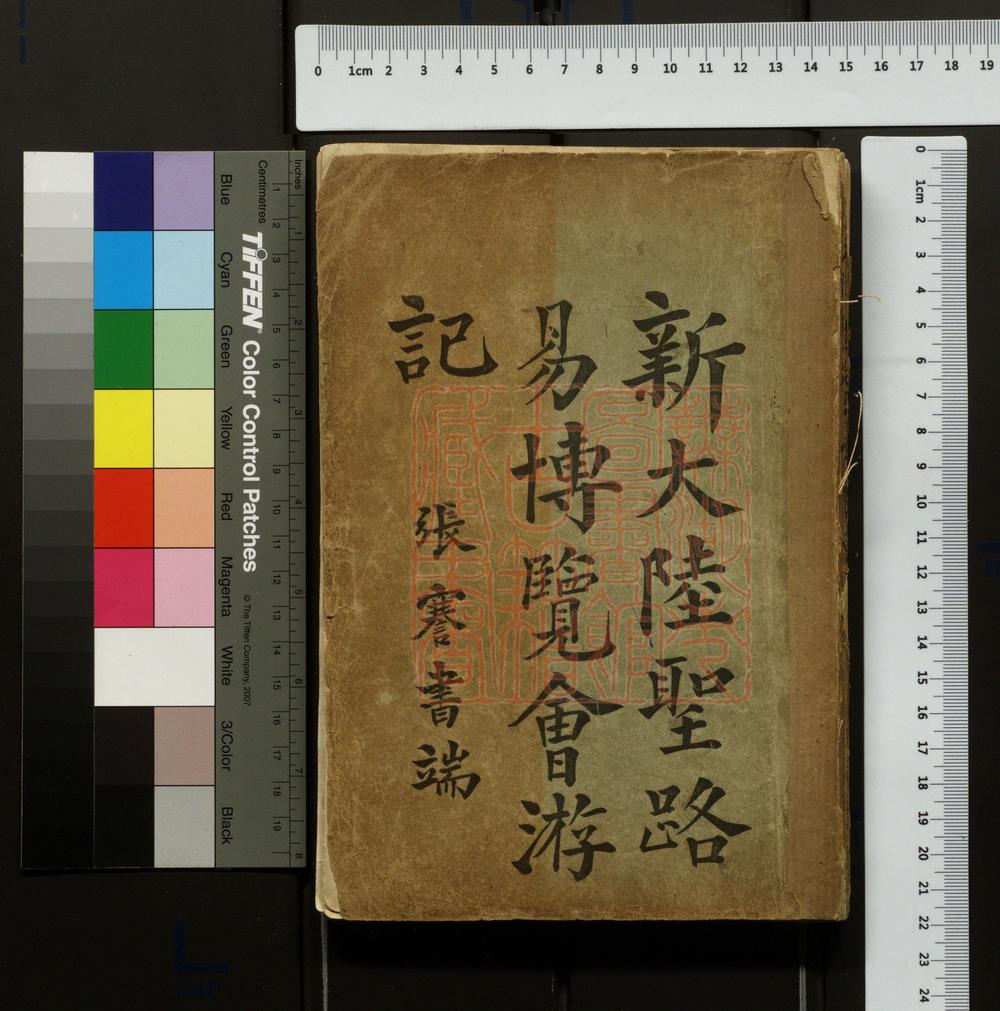 新大陸聖路
易博覽會游
記
張謇書端
0 1cm 2 3 4 5 6 7 8 9 10 11 12 13 14 15 16 17 18 19
0 1cm 2 3 4 5 6 7 8 9 10 11 12 13 14 15 16 17 18 19 20 21 22 23 24
Inches
1 2 3 4 5 6 7 8
Centimetres
1 2 3 4 5 6 7 8 9 10 11 12 13 14 15 16 17 18 19
TIFFEN® Color Control Patches
© The Tiffen Company, 2007
Blue
Cyan
Green
Yellow
Red
Magenta
White
3/Color
Black